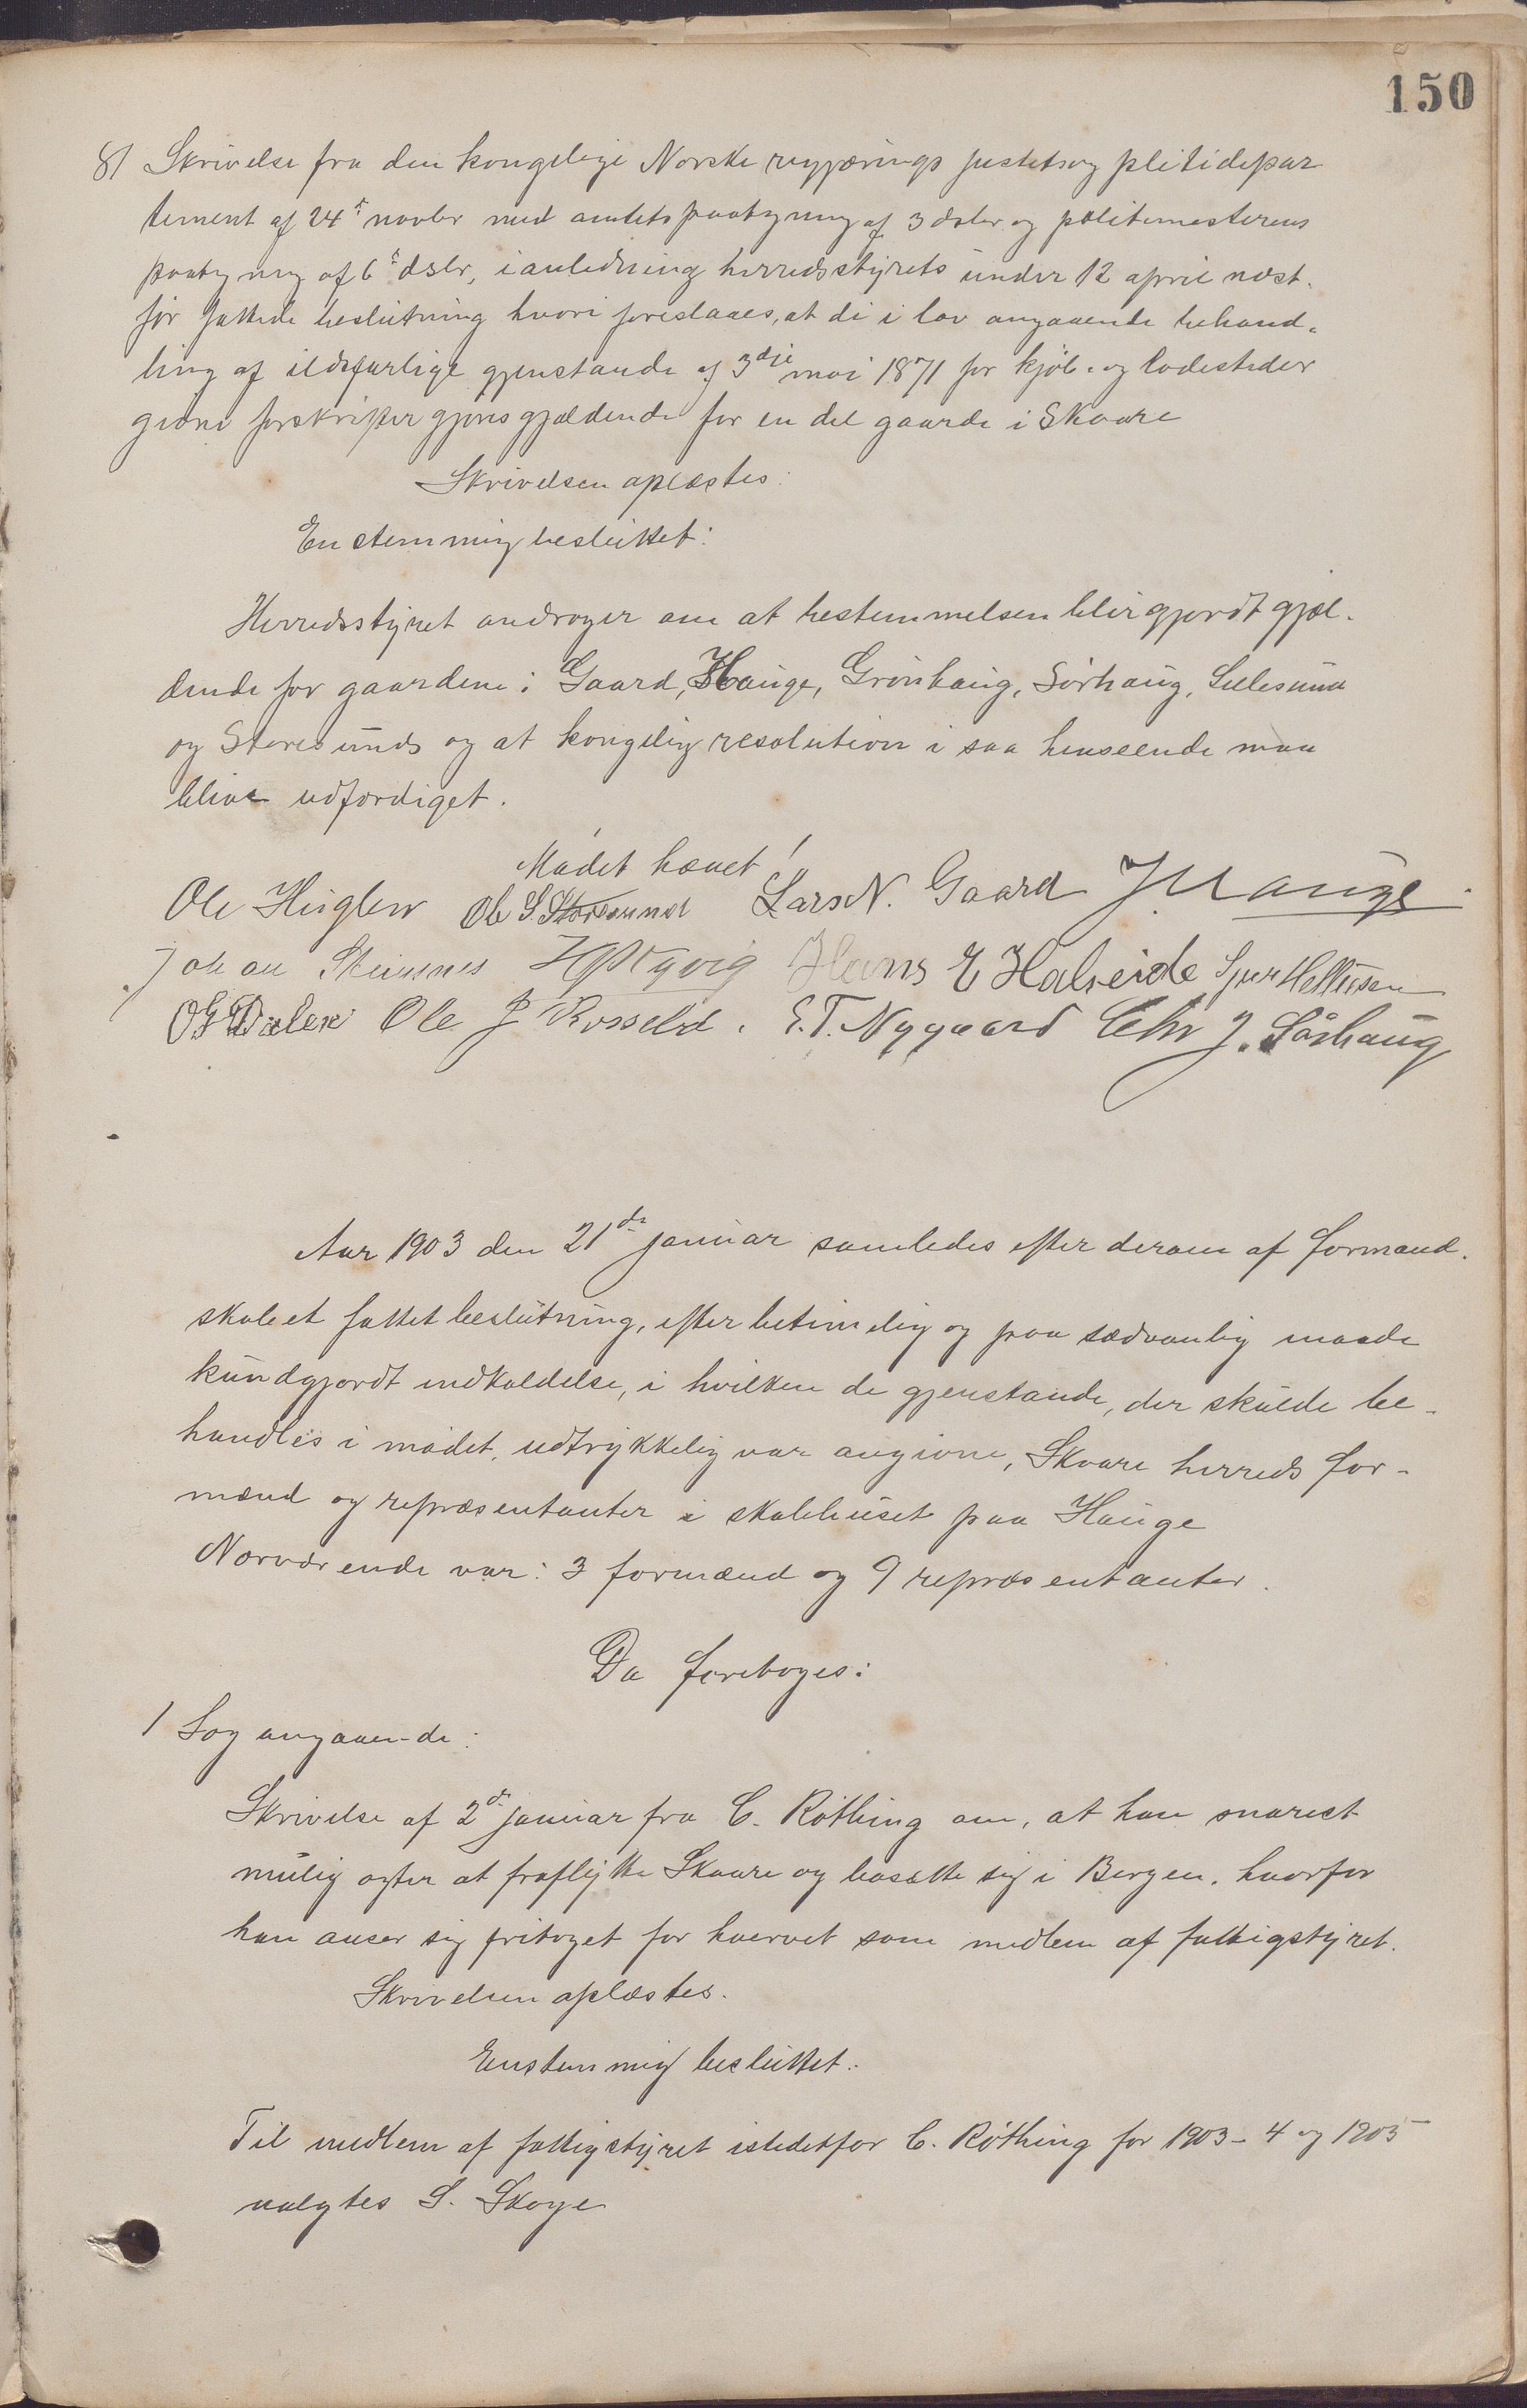 150
8/ Skrivelse fra den kongelige Norske regjærings justits og plitidepar
tement af 24de novbr med amtets paategning af 3 dsbr og politimesterens
paategning af 6te dsbr, i anledning herredsstyrets under 12 april næst.
før fattede beslutning hvori foreslaaes, at de i lov angaaende behand-
ling af ildsfarlige gjenstande af 3die mai 1871 for kjöb- og ladesteder
givne forskrifter gjøres gjældende for en del gaarde i Skaare
Skrivelsen oplæstes:
Enstemmig besluttet:
Herredsstyret androger om at bestemmelsen blir gjordt gjæl-
dende for gaardene: Gaard, Hauge, Grönhaug, Sörhaug, Lillesund
og Storesunds og at kongelig resolution i saa henseende maa
blive udfærdiget.
Mödet hævet!
Ole Huglen Ole S. Storesund Lars N. Gaard J. M. Hauge
Johan Steinsnes Hans E Halseide Sjur Hellesen
Ole J Rossebö. E. T. Nygaard Chr J. Sörhaug
Aar 1903 den 21de januar samledes efter derom af formand-
skabet fattet beslutning, efter betimelig og paa sædvanlig maade
kundgjordt indkaldelse, i hvilken de gjenstande, der skulde be-
handles i mödet, udtrykkelig var angivne, Skaare herreds for-
mænd og repræsentanter i skolehuset paa Hauge
Nærværende var: 3 formænd og 9 repræsentanter.
Da foretoges:
1 Sag angaaende:
Skrivelse af 2de januar fra C. Röthing om, at han snarest
mulig agter at fraflytte Skaare og bosætte sig i Bergen, hvorfor
han anser sig fritaget for hvervet som medlem af fattigstyret.
Skrivelsen oplæstes.
Enstemmig besluttet:
Til medlem af fattigstyret istedetfor C. Röthing for 1903-4 og 1905
valgtes S. Skoge